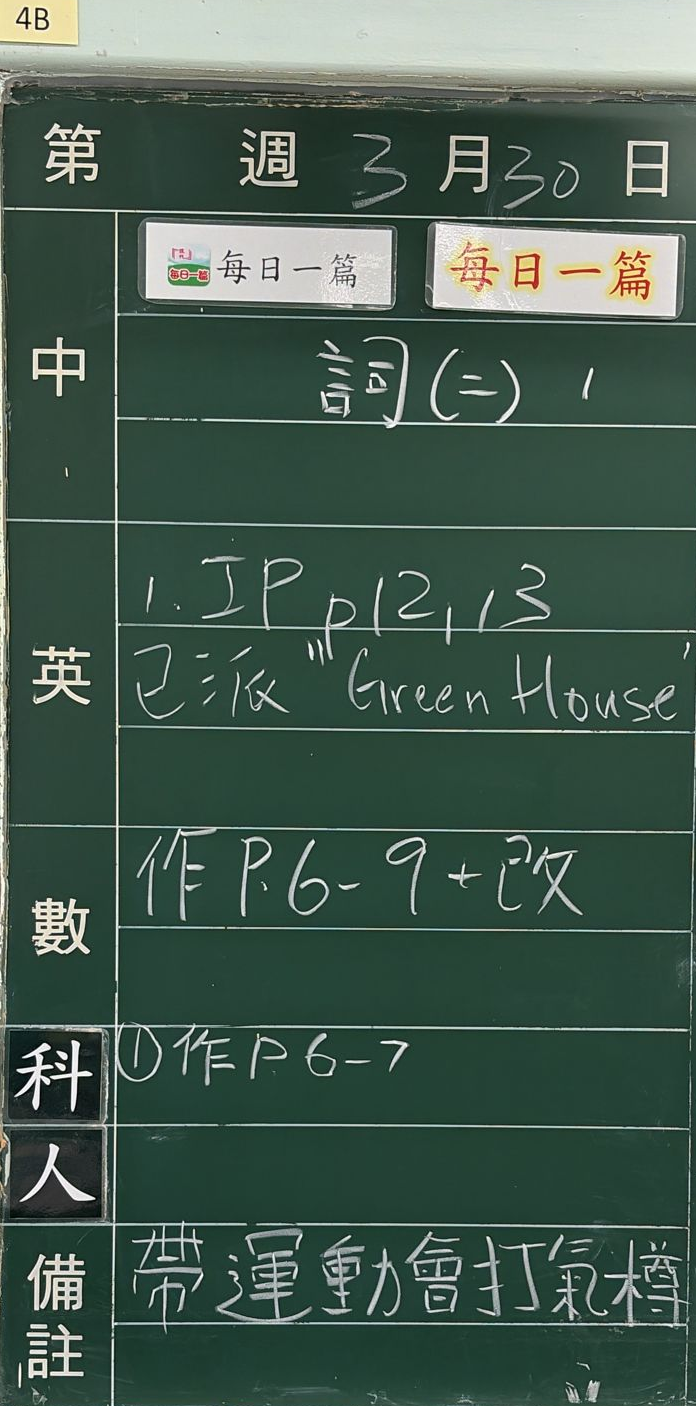 4B
第 週 3 月 30 日
中
每日一篇 每日一篇
詞(二) 1
英
1. IP p12,13
已派 "Green House"
數
作 P.6-9 + 改
科
①作 P 6-7
人
備註
帶運動會打氣樽